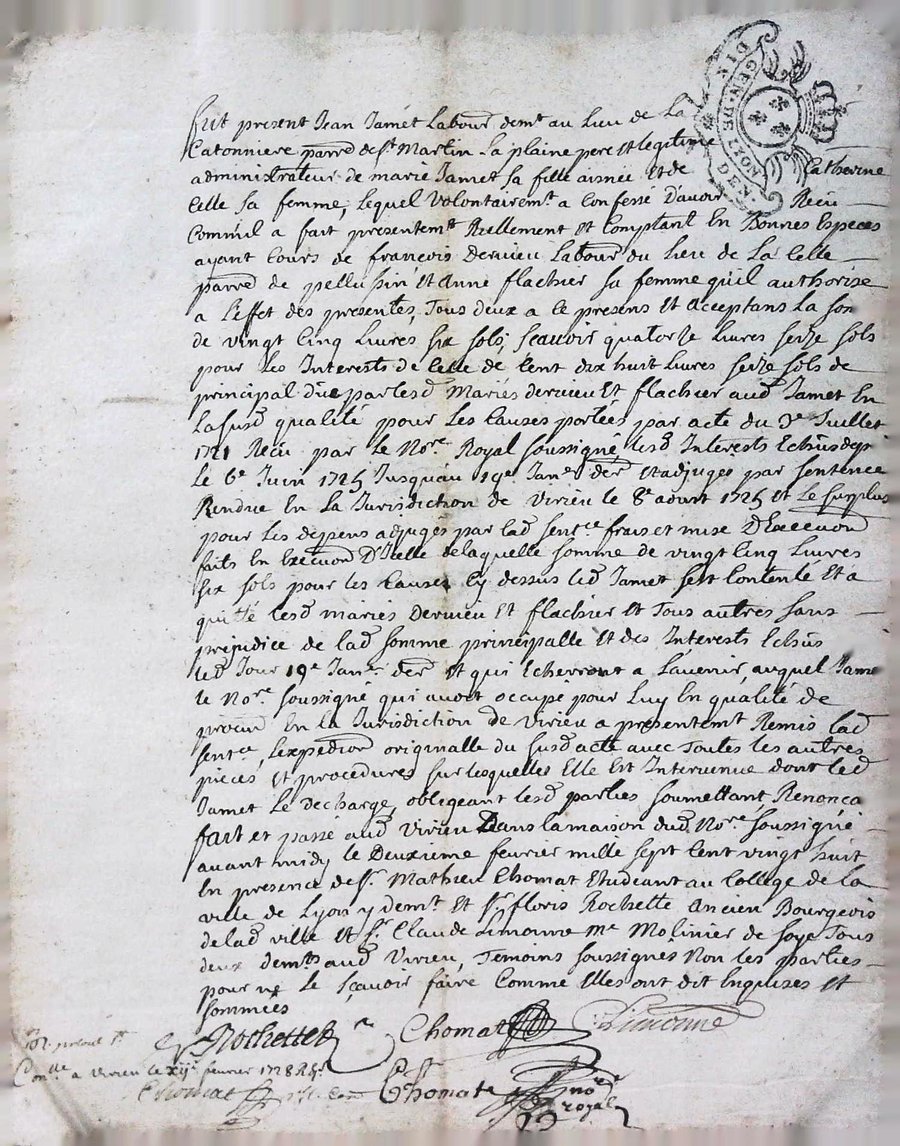 GEN. DE LYON
DEN.
fut present Jean Jamét Labour demt au Lieu de La
Catonniere parre de St Martin La plaine pere et legitime
administrateur de marie Jamet sa fille aisneé et de Catherine
Celle sa femme, lequel Volontairemt a Confessé D'avoir Recu
Comme il a fait presentemt Reellement et Comptant En Bonnes Especes
ayant Cours de francois Dervieu Labour du Lieu de La Celle
parre de pellussin et Anne flachier sa femme quil authorise
a L'effet des presentes, Tous deux a ce presens et acceptans La som
de vingt Cinq Livres six sols, scavoir quatorze Livres seize sols
pour les Interests de Celle de Cent dix huit Livres seize sols de
principal düe par lesd Mariés dervieu Et flachier aud Jamet En
La susd qualité pour Les Causes portées par acte du 3e Juillet
1721 Recu par Le Nore Royal soussigné lesd Interests Echus depi
Le 6e Juin 1725 Jusquau 19e Janer der et adjuges par sentence
Rendue En La Jurisdiction de Virieu le 8e aoust 1725 et le surplus
pour Les depens adjugés par lad sentce frais et mise D'Execuon
faits En Execuon D'Icelle de laquelle somme de vingt Cinq Livres
six sols pour les Causes Cy dessus led Jamet s'est Contenté Et a
quitté lesd maries Dervieu Et flachier et Tous autres sans
prejudice de lad somme principalle et des Interests Echus
led Jour 19e Janer der et qui Echerront a L'avenir, auquel Jame
le Nore soussigné qui avoit occupé pour Luy En qualité de
procur En la Jurisdiction de Virieu a presentemt Remis lad
sentce, L'expedion originalle du susd acte avec Toutes les autres
pieces et procedures sur lesquelles Elle Est Intervenue dont led
Jamet Le decharge, obligeant lesd parties soumettant, Renonca
fait et passé aud Virieu Dans la maison dud Nore soussigné
avant midy le Deuxieme février mille sept Cent vingt huit
En presence de sr Mathieu Chomat Etudeant au College de la
ville de Lyon y demt Et sr floris Rochette ancien Bourgeois
de lad ville et sr Claude Limonne Me Molinier de soye Tous
deux demts aud Virieu, Temoins soussignés Non les parties
pour ne le sçavoir faire Comme Elles ont dit Enquises et
sommées
Rochette Chomat Limonne
Conlle a virieu le xije fevrier 1728
Chomat Chomat nore
royal